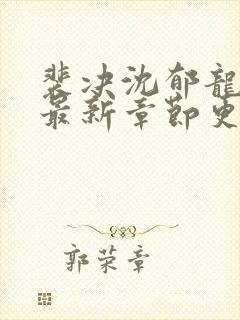 裴决沈郁龍
最新章節更
郭荣章